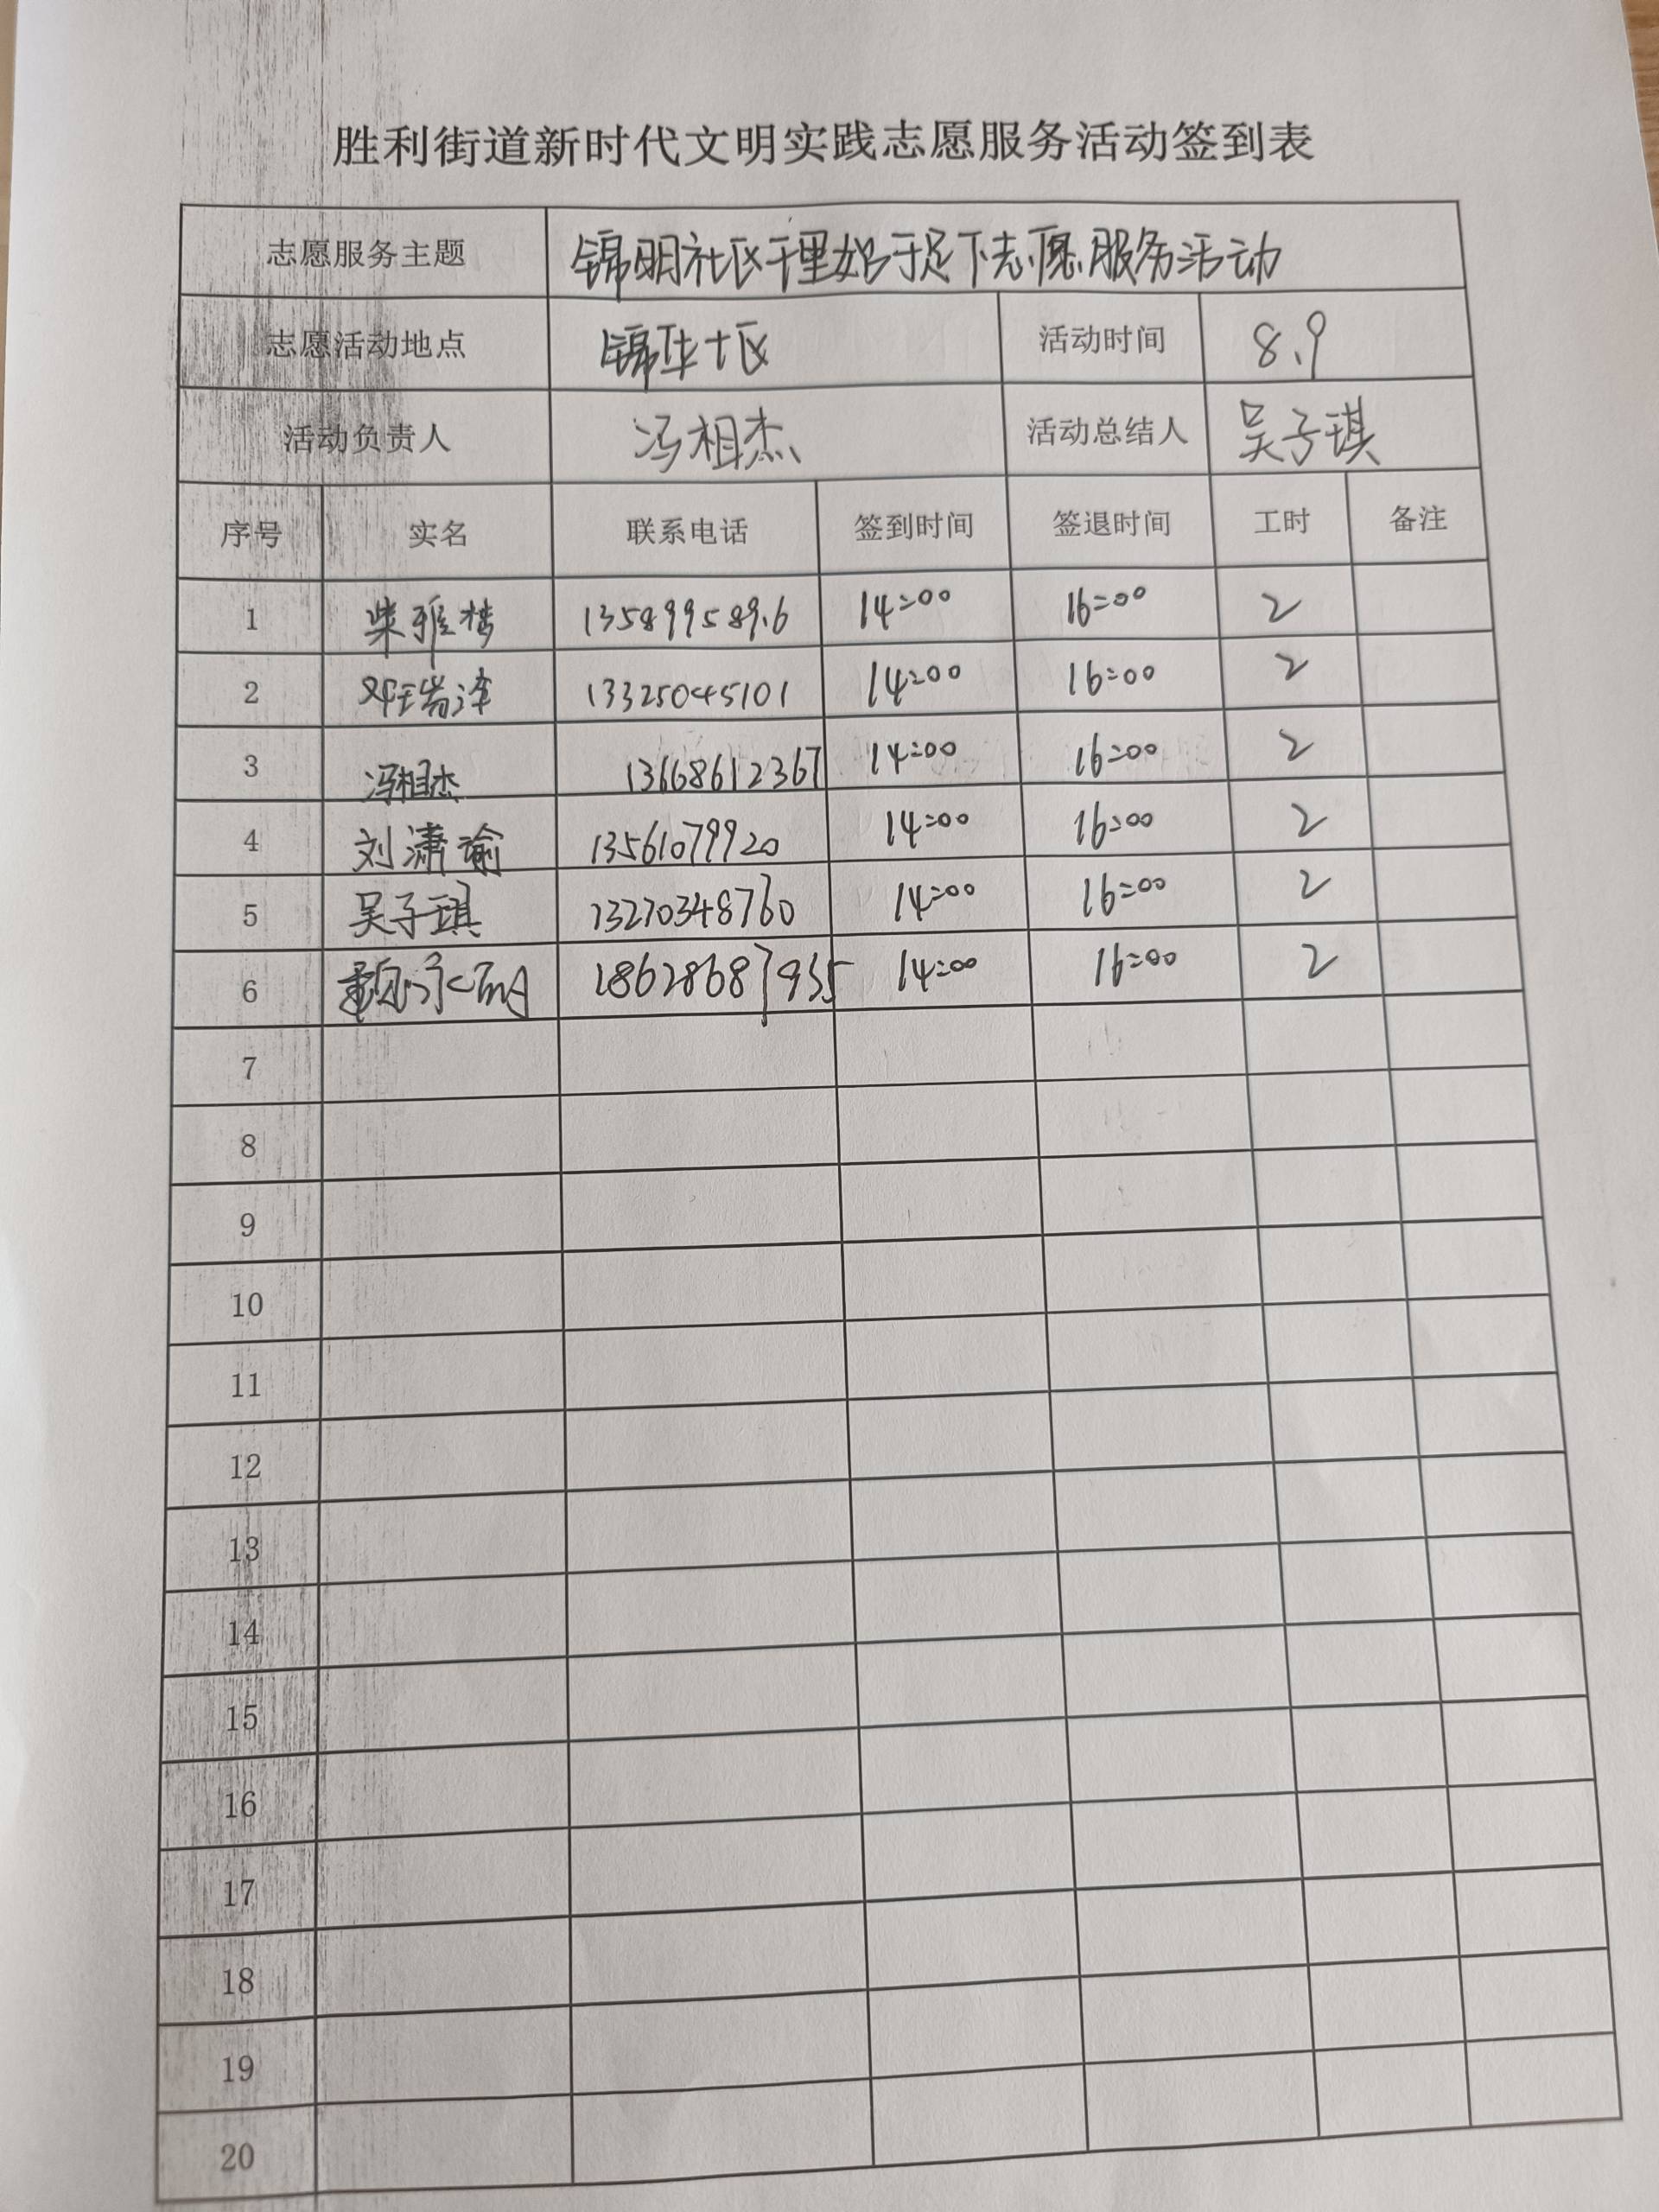 胜利街道新时代文明实践志愿服务活动签到表
志愿服务主题 锦明社区千里始于足下志愿服务活动
志愿活动地点 锦华七区 活动时间 8.9
活动负责人 冯相杰 活动总结人 吴子琪
序号 实名 联系电话 签到时间 签退时间 工时 备注
1 柴雅楼 135899589.6 14:00 16:00 2
2 邓瑞泽 13325045101 14:00 16:00 2
3 冯相杰 13668612367 14:00 16:00 2
4 刘潇谕 13561079920 14:00 16:00 2
5 吴子琪 13270348760 14:00 16:00 2
6 18628687935 14:00 16:00 2
7
8
9
10
11
12
13
14
15
16
17
18
19
20